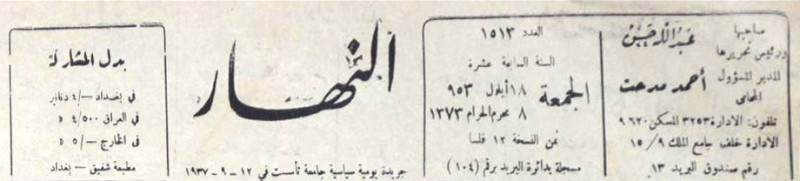 صاحبها
ورئيس تحريرها
عبدالله حسين
المدير المسؤول
المحامي
أحمد مدحت
تلفون: الادارة ٣٢٥٣ المسكن ٩٦٢٠
الادارة خلف جامع الملك ١٥/٩
رقم صندوق البريد ١٣
العدد ١٥١٣
السنة السابعة عشرة
الجمعة
١٨ أيلول ٩٥٣
٨ محرم الحرام ١٣٧٣
ثمن النسخة ١٢ فلسا
مسجلة بدائرة البريد برقم (١٠٤)
النهار
جريدة يومية سياسية جامعة تأسست في ١٢-٩-١٩٣٧
بدل المشاركة
في بغداد -/٤ دنانير
في العراق ٤/٥٠٠ »
في الخارج -/٥ »
مطبعة شفيق - بغداد